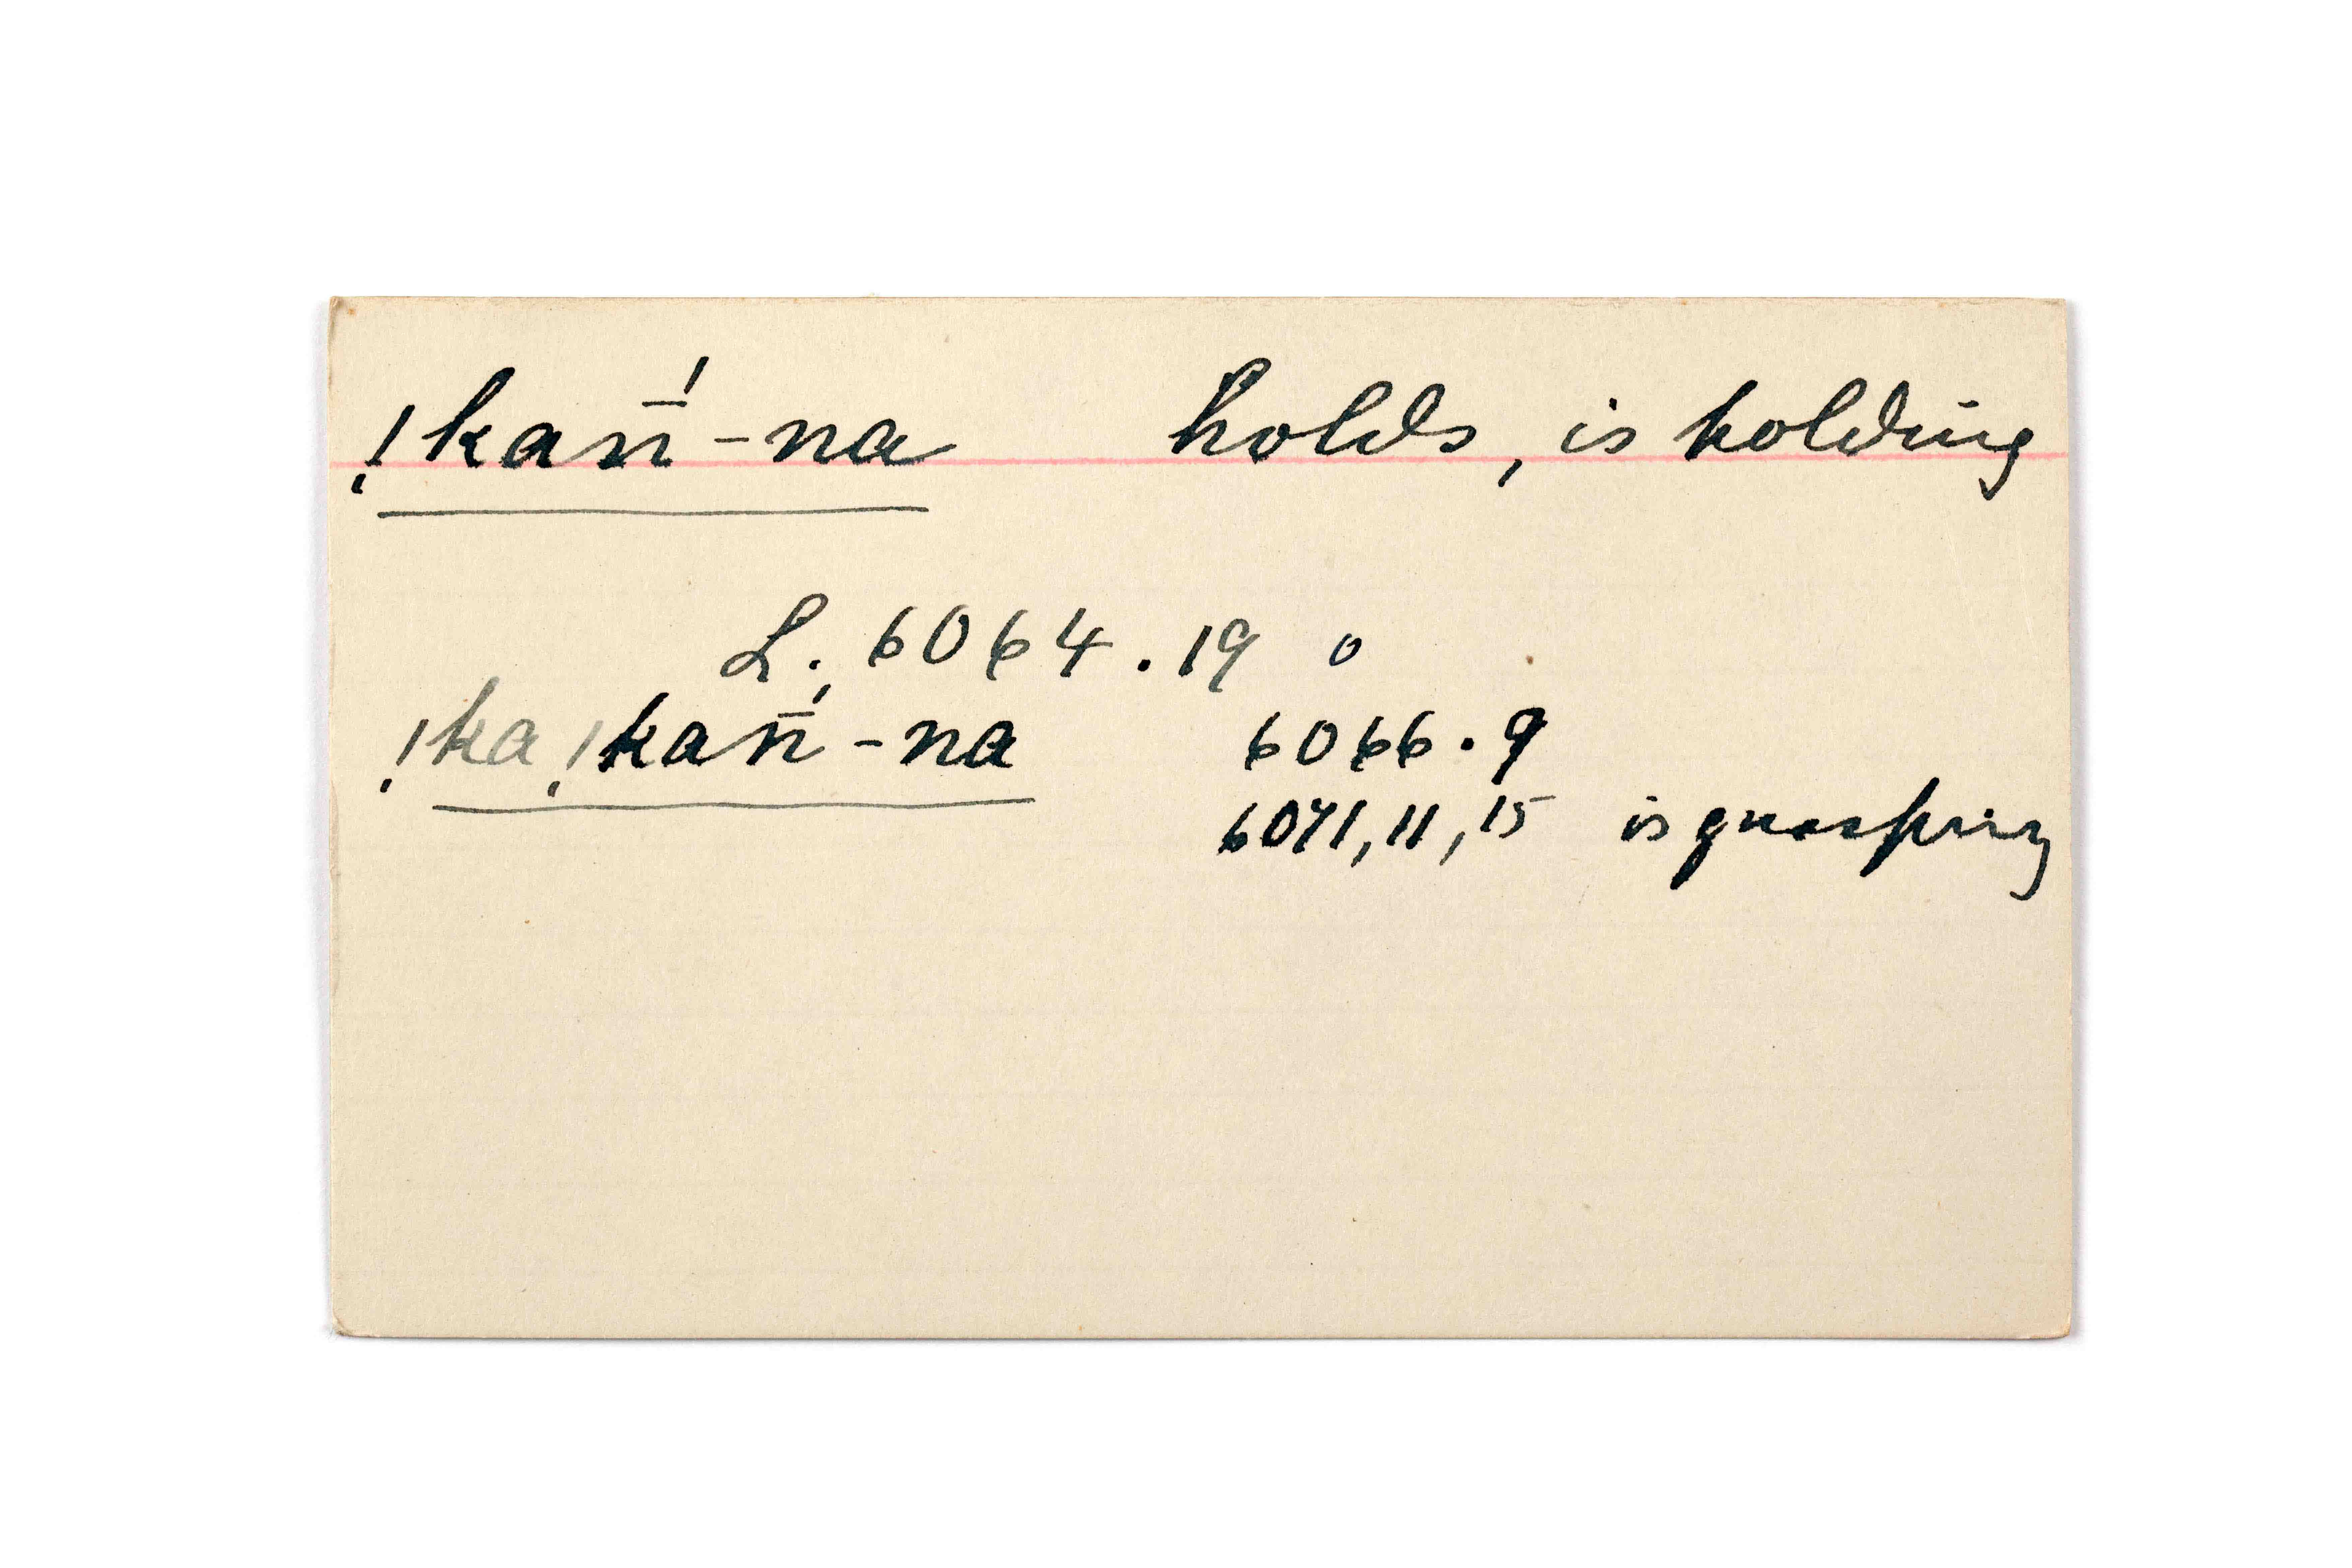 !kan̄́-na holds, is holding
L. 6064.19 o
!ka!kan̄́-na 6066.9
6071, 11, 15 is grasping